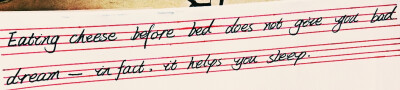 Eating cheese before bed does not give you bad
dream — in fact. it helps you sleep.